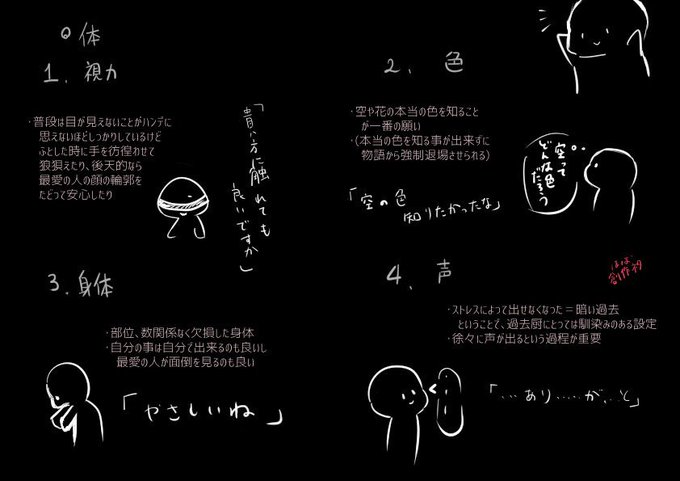 ○体
1. 視力
・普段は目が見えないことがハンデに
思えないほどしっかりしているけど
ふとした時に手を彷徨わせて
狼狽えたり、後天的なら
最愛の人の顔の輪郭を
たどって安心したり
「貴方に触れても
良いですか」
2. 色
・空や花の本当の色を知ること
が一番の願い
・(本当の色を知る事が出来ずに
物語から強制退場させられる)
「空の色
知りたかったな」
空って
どんな色
だろう
3. 身体
・部位、数関係なく欠損した身体
・自分の事は自分で出来るのも良いし
最愛の人が面倒を見るのも良い
「やさしいね」
4. 声
・ストレスによって出せなくなった=暗い過去
ということで、過去厨にとっては馴染みのある設定
・徐々に声が出るという過程が重要
「…あり……が、…と」